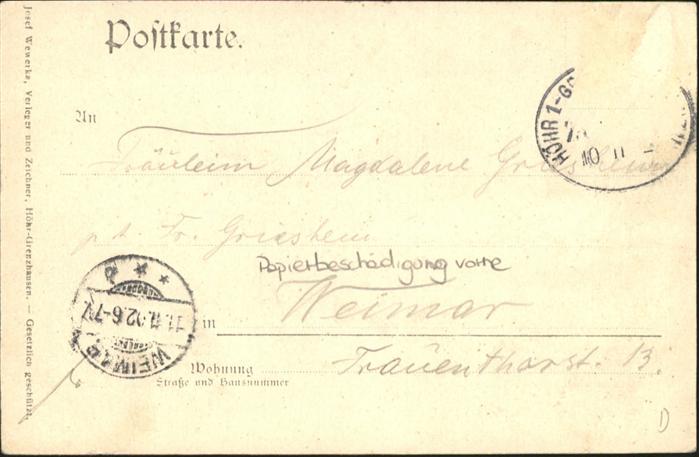 Postkarte.
An
HÖHR 1-G
10 11
Fräulein Magdalene Griesheim
p. A. Fr. Griesheim
Papierbeschädigung vorne
in Weimar
WEIMAR
11.11.02.6-7V.
Wohnung Frauenthorst. 13.
Straße und Hausnummer
D
Josef Wewerka, Verleger und Zeichner, Höhr-Grenzhausen. — Gesetzlich geschützt.